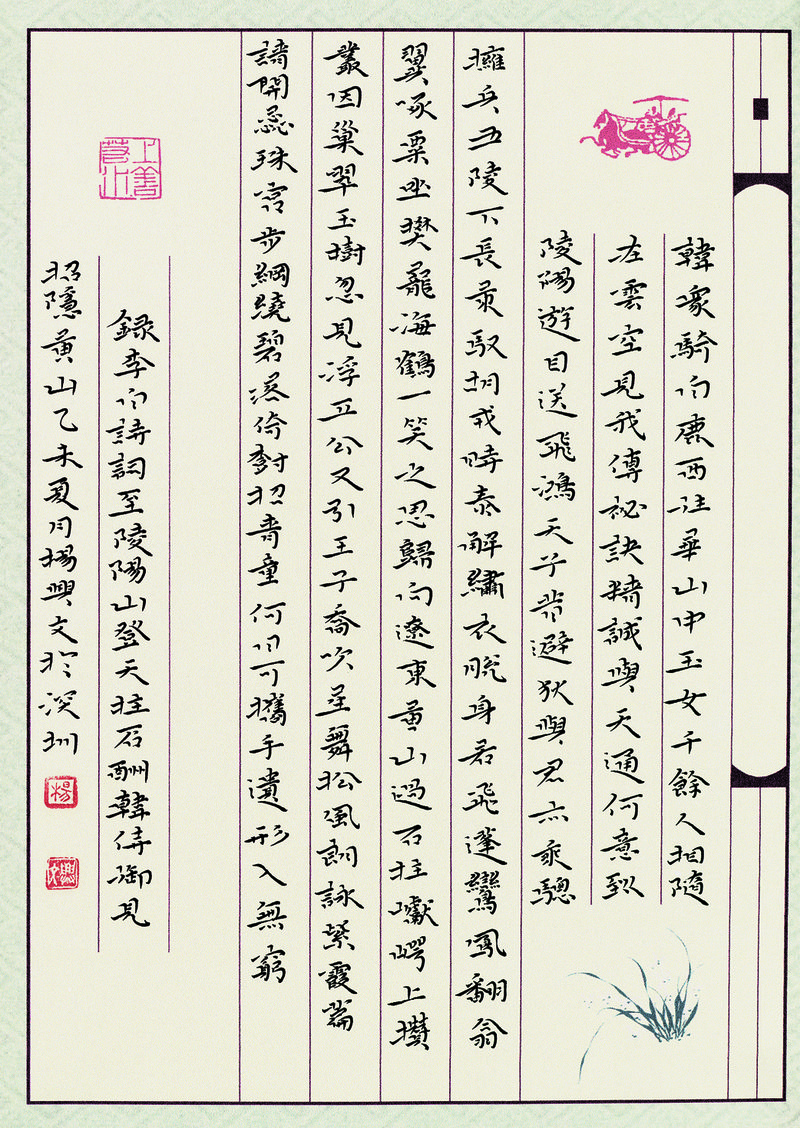 韓眾騎白鹿西往華山中玉女千餘人相隨
在雲空見我傳祕訣精誠與天通何意到
陵陽遊目送飛鴻天子昔避狄與君亦乘驄
擁兵五陵下長策馭胡戎時泰解繡衣脫身若飛蓬鸞鳳翻翕
翼啄粟坐樊籠海鶴一笑之思歸向遼東黃山過石柱巘崿上攢
叢因巢翠玉樹忽見浮丘公又引王子喬吹笙舞松風朗詠紫霞篇
請開蕊珠宮步綱繞碧落倚樹招青童何日可攜手遺形入無窮
上善若水
錄李白詩詞至陵陽山登天柱石酬韓侍御見
招隱黃山乙未夏月楊興文於深圳
楊
興文